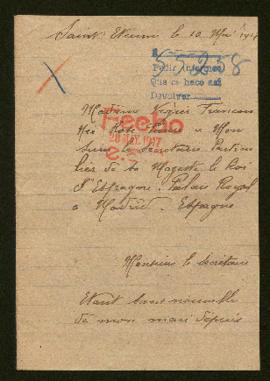 Saint Etienne le 10 Mai 191
Pedir Informes
Que se hace así
Devolver
Madame François
Née à Mon
Hecho
28 MAY. 1917
sieur le Secrétaire Particu
lier de Sa Majesté le Roi
d'Espagne. Palais Royal
a Madrid Espagne
Monsieur le Secrétaire
Etant sans nouvelle
de mon mari depuis